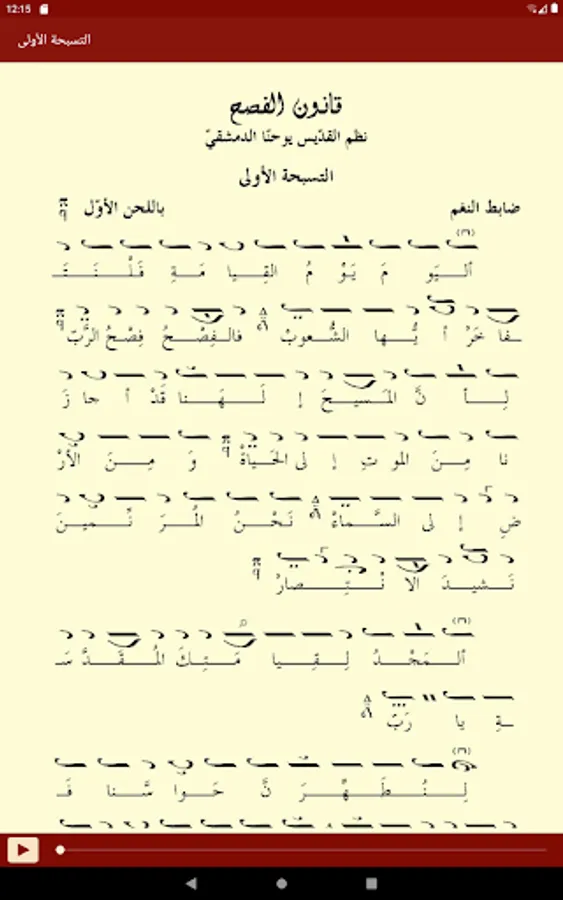 12:15
التسبحة الأولى
قانون الفصح
نظم القدّيس يوحنّا الدمشقيّ
التسبحة الأولى
ضابط النغم باللحن الأوّل
أليَو مَ يَوْ مُ القِيا مَةِ فَلْنَتَـ
ـفا خَرْ أ يُّها الشُّعوبُ فالفِصْحُ فِصْحُ الرَّبّ
لِأ نَّ المَسيحَ إ لَهَنا قَدْ أ جا زَ
نا مِنَ الموتِ إ لى الحَياةْ وَ مِنَ الأرْ
ضِ إ لى السَّماءْ نَحْنُ المُرَ نِّمينَ
نَشيدَ الا نْتِصارْ
ألمَجْدُ لِقِيا مَتِكَ المُقَدَّ سَـ
ـةِ يا رَبّ
لِنُطَهِّرَ نَّ حَوا سَّنا فَـ